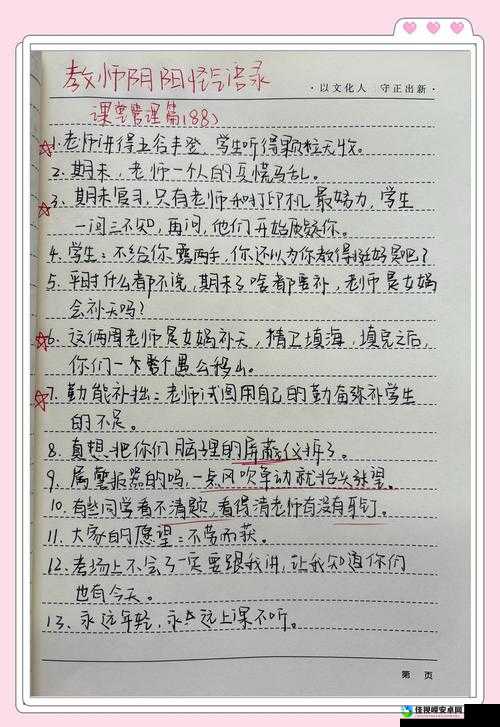 教师阴阳怪气语录
· 以文化人 守正出新 ·
课堂管理篇(88)
1. 老师讲得五谷丰登,学生听得颗粒无收。
2. 期末,老师一个人的兵慌马乱。
3. 期末复习,只有老师和打印机最努力,学生
一问三不知,再问,他们开始质疑你。
4. 学生:不给你露两手,你还以为你教得挺好是吧?
5. 平时什么都不说,期末了啥都要补,老师是女娲
会补天吗?
6. 这俩周老师是女娲补天,精卫填海,填完之后,
你们一个整个愚公移山。
7. 勤能补拙:老师试图用自己的勤奋弥补学生
的不足。
8. 真想把你们脑子里的屏蔽仪拆了。
9. 属警报器的吗,一点风吹草动就抬头张望。
10. 有些同学看不清题,看得清老师有没有耳钉。
11. 大家的愿望:不劳而获。
12. 考场上不会了一定要跟我讲,让我知道你们
也有今天。
13、永远年轻,永远上课不听。
第 页
佳视峰安卓网